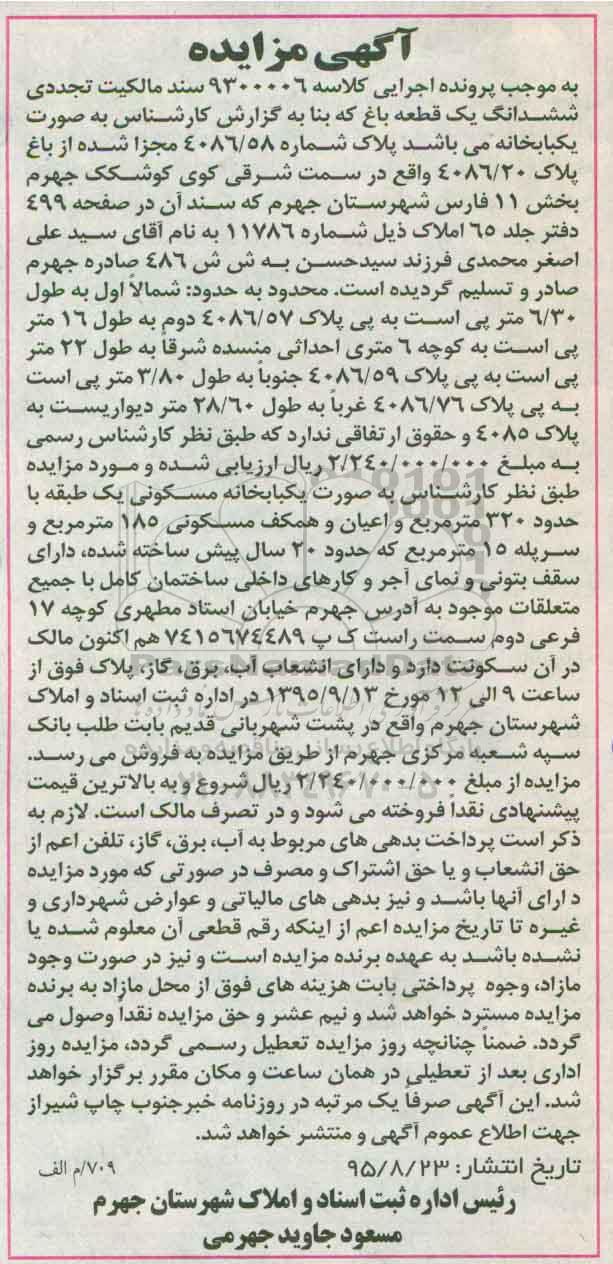 آگهی مزایده
به موجب پرونده اجرایی کلاسه ۹۳۰۰۰۰۶ سند مالکیت تجددی
ششدانگ یک قطعه باغ که بنا به گزارش کارشناس به صورت
یکبابخانه می باشد پلاک شماره ۴۰۸۶/۵۸ مجزا شده از باغ
پلاک ۴۰۸۶/۲۰ واقع در سمت شرقی کوی کوشکک جهرم
بخش ۱۱ فارس شهرستان جهرم که سند آن در صفحه ۴۹۹
دفتر جلد ۶۵ املاک ذیل شماره ۱۱۷۸۶ به نام آقای سید علی
اصغر محمدی فرزند سیدحسن به ش ش ۴۸۶ صادره جهرم
صادر و تسلیم گردیده است. محدود به حدود: شمالاً اول به طول
۶/۳۰ متر پی است به پی پلاک ۴۰۸۶/۵۷ دوم به طول ۱۶ متر
پی است به کوچه ۶ متری احداثی منسده شرقاً به طول ۲۲ متر
پی است به پی پلاک ۴۰۸۶/۵۹ جنوباً به طول ۳/۸۰ متر پی است
به پی پلاک ۴۰۸۶/۷۶ غرباً به طول ۲۸/۶۰ متر دیواریست به
پلاک ۴۰۸۵ و حقوق ارتفاقی ندارد که طبق نظر کارشناس رسمی
به مبلغ ۲/۲۴۰/۰۰۰/۰۰۰ ریال ارزیابی شده و مورد مزایده
طبق نظر کارشناس به صورت یکبابخانه مسکونی یک طبقه با
حدود ۳۲۰ مترمربع و اعیان و همکف مسکونی ۱۸۵ مترمربع و
سرپله ۱۵ مترمربع که حدود ۲۰ سال پیش ساخته شده، دارای
سقف بتونی و نمای آجر و کارهای داخلی ساختمان کامل با جمیع
متعلقات موجود به آدرس جهرم خیابان استاد مطهری کوچه ۱۷
فرعی دوم سمت راست ک پ ۷۴۱۵۶۷۴۴۸۹ هم اکنون مالک
در آن سکونت دارد و دارای انشعاب آب، برق، گاز، پلاک فوق از
ساعت ۹ الی ۱۲ مورخ ۱۳۹۵/۹/۱۳ در اداره ثبت اسناد و املاک
شهرستان جهرم واقع در پشت شهربانی قدیم بابت طلب بانک
سپه شعبه مرکزی جهرم از طریق مزایده به فروش می رسد.
مزایده از مبلغ ۲/۲۴۰/۰۰۰/۰۰۰ ریال شروع و به بالاترین قیمت
پیشنهادی نقدا فروخته می شود و در تصرف مالک است. لازم به
ذکر است پرداخت بدهی های مربوط به آب، برق، گاز، تلفن اعم از
حق انشعاب و یا حق اشتراک و مصرف در صورتی که مورد مزایده
دارای آنها باشد و نیز بدهی های مالیاتی و عوارض شهرداری و
غیره تا تاریخ مزایده اعم از اینکه رقم قطعی آن معلوم شده یا
نشده باشد به عهده برنده مزایده است و نیز در صورت وجود
مازاد، وجوه پرداختی بابت هزینه های فوق از محل مازاد به برنده
مزایده مسترد خواهد شد و نیم عشر و حق مزایده نقداً وصول می
گردد. ضمناً چنانچه روز مزایده تعطیل رسمی گردد، مزایده روز
اداری بعد از تعطیلی در همان ساعت و مکان مقرر برگزار خواهد
شد. این آگهی صرفاً یک مرتبه در روزنامه خبرجنوب چاپ شیراز
جهت اطلاع عموم آگهی و منتشر خواهد شد.
تاریخ انتشار: ۹۵/۸/۲۳ ۷۰۹/م الف
رئیس اداره ثبت اسناد و املاک شهرستان جهرم
مسعود جاوید جهرمی